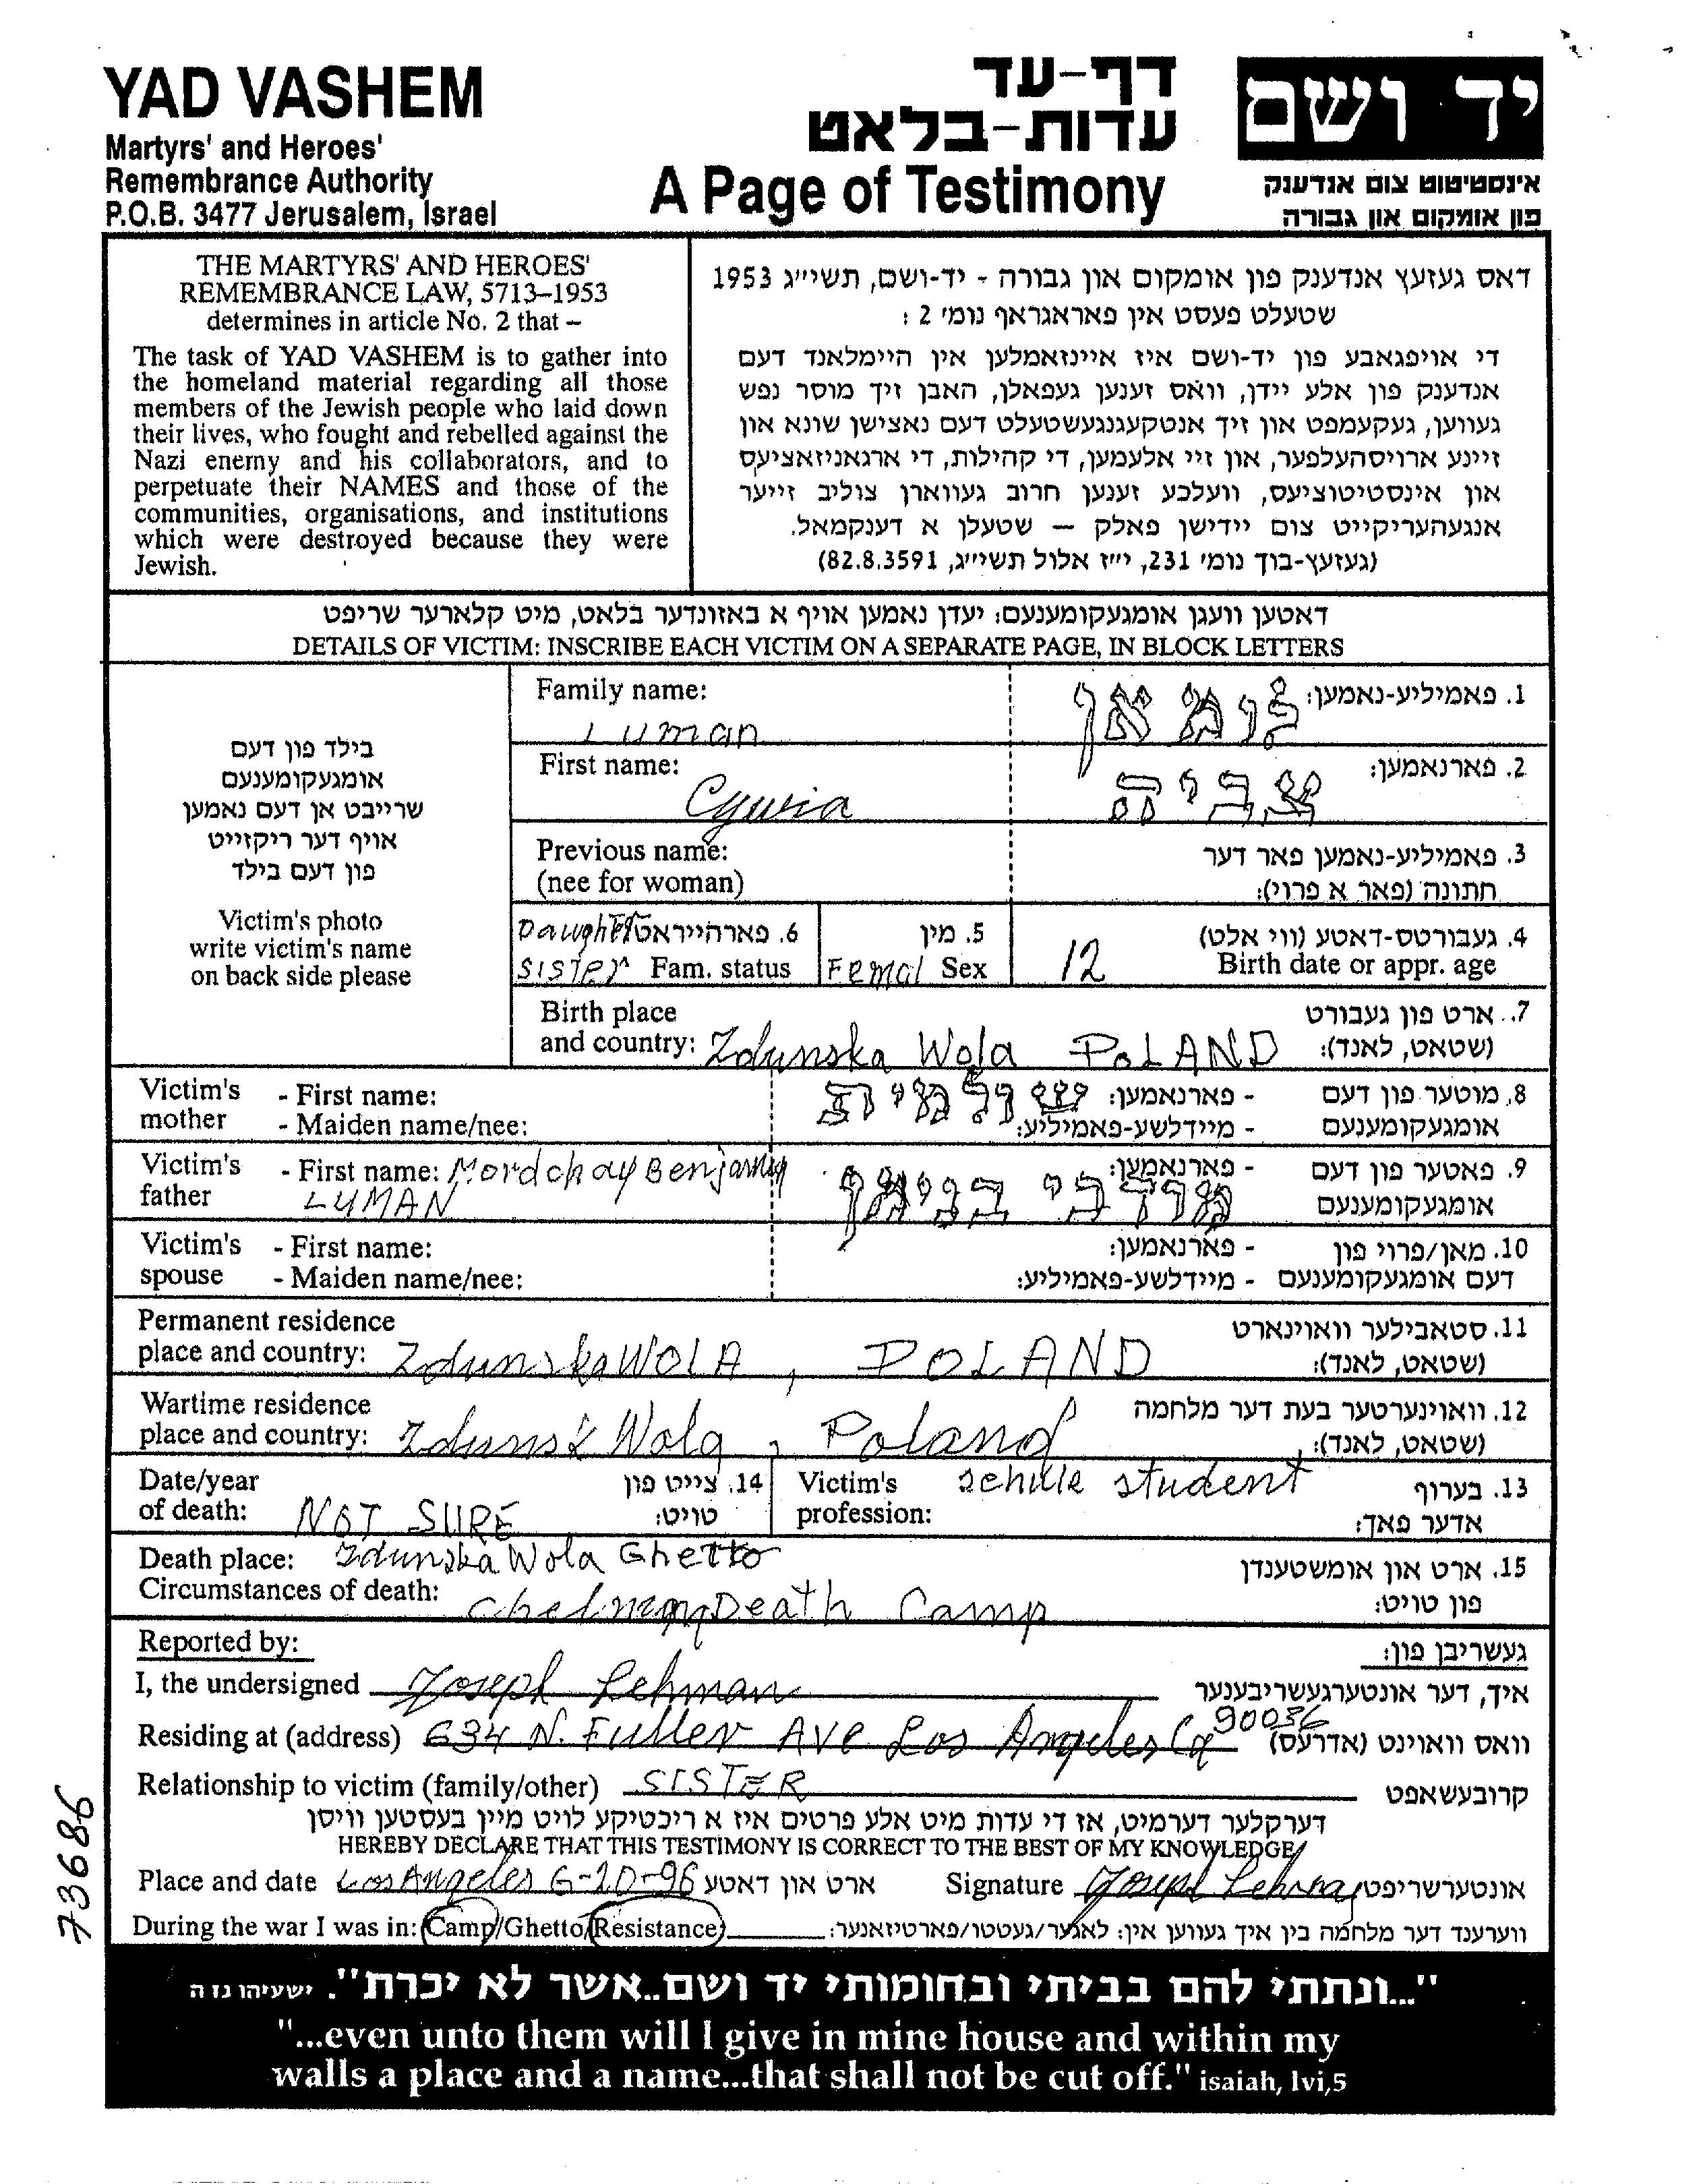 YAD VASHEM
Martyrs' and Heroes'
Remembrance Authority
P.O.B. 3477 Jerusalem, Israel
דף-עד
עדות-בלאט
A Page of Testimony
יד ושם
אינסטיטוט צום אנדענק
פון אומקום און גבורה
THE MARTYRS' AND HEROES'
REMEMBRANCE LAW, 5713–1953
determines in article No. 2 that –
The task of YAD VASHEM is to gather into
the homeland material regarding all those
members of the Jewish people who laid down
their lives, who fought and rebelled against the
Nazi enemy and his collaborators, and to
perpetuate their NAMES and those of the
communities, organisations, and institutions
which were destroyed because they were
Jewish.
דאס געזעץ אנדענק פון אומקום און גבורה - יד-ושם, תשי״ג 1953
שטעלט פעסט אין פאראגראף נומ׳ 2 :
די אויפגאבע פון יד-ושם איז איינזאמלען אין היימלאנד דעם
אנדענק פון אלע יידן, וואס זענען געפאלן, האבן זיך מוסר נפש
געווען, געקעמפט און זיך אנטקעגנגעשטעלט דעם נאצישן שונא און
זיינע ארויסהעלפער, און זיי אלעמען, די קהילות, די ארגאניזאציעס
און אינסטיטוציעס, וועלכע זענען חרוב געווארן צוליב זייער
אנגעהעריקייט צום יידישן פאלק — שטעלן א דענקמאל.
(געזעץ-בוך נומ׳ 231, י״ז אלול תשי״ג, 82.8.3591)
דאטען וועגן אומגעקומענעם: יעדן נאמען אויף א באזונדער בלאט, מיט קלארער שריפט
DETAILS OF VICTIM: INSCRIBE EACH VICTIM ON A SEPARATE PAGE, IN BLOCK LETTERS
בילד פון דעם
אומגעקומענעם
שרייבט אן דעם נאמען
אויף דער ריקזייט
פון דעם בילד
Victim's photo
write victim's name
on back side please
Family name:
Luman
1. פאמיליע-נאמען: לומאן
First name:
Cywia
2. פארנאמען:
צביה
Previous name:
(nee for woman)
3. פאמיליע-נאמען פאר דער
חתונה (פאר א פרוי):
Daughter 6. פארהייראט
SISTER Fam. status
5. מין
Femal Sex
4. געבורטס-דאטע (ווי אלט)
12 Birth date or appr. age
Birth place
and country: Zdunska Wola POLAND
7. ארט פון געבורט
(שטאט, לאנד):
Victim's mother
- First name:
- Maiden name/nee:
8. מוטער פון דעם
אומגעקומענעם
- פארנאמען:
- מיידלשע-פאמיליע:
Victim's father
- First name: Mordchay Benjamin
LYMAN
9. פאטער פון דעם
אומגעקומענעם
- פארנאמען:
מרדכי בנימן
Victim's spouse
- First name:
- Maiden name/nee:
10. מאן/פרוי פון
דעם אומגעקומענעם
- פארנאמען:
- מיידלשע-פאמיליע:
Permanent residence
place and country: Zdunska WOLA, POLAND
11. סטאבילער וואוינארט
(שטאט, לאנד):
Wartime residence
place and country: Zdunsk Wola, Poland
12. וואוינערטער בעת דער מלחמה
(שטאט, לאנד):
Date/year
of death: NOT SURE
14. צייט פון
טויט:
Victim's
profession: schule student
13. בערוף
אדער פאך:
Death place: Zdunska Wola Ghetto
Circumstances of death: Death Camp
15. ארט און אומשטענדן
פון טויט:
Reported by:
געשריבן פון:
I, the undersigned Joseph Lehman
איך, דער אונטערגעשריבענער
Residing at (address) 634 N. Fuller AVE Los Angeles Ca 90036
וואס וואוינט (אדרעס)
Relationship to victim (family/other) SISTER
קרובעשאפט
דערקלער דערמיט, אז די עדות מיט אלע פרטים איז א ריכטיקע לויט מיין בעסטען וויסן
HEREBY DECLARE THAT THIS TESTIMONY IS CORRECT TO THE BEST OF MY KNOWLEDGE
Place and date Los Angeles 6-20-96 ארט און דאטע
Signature Joseph Lehman אונטערשריפט
During the war I was in: Camp/Ghetto/Resistance)
ווערענד דער מלחמה בין איך געווען אין: לאגער/געטטו/פארטיזאנער:
73686
"...ונתתי להם בביתי ובחומותי יד ושם..אשר לא יכרת". ישעיהו נז ה
"...even unto them will I give in mine house and within my
walls a place and a name...that shall not be cut off." isaiah, lvi,5